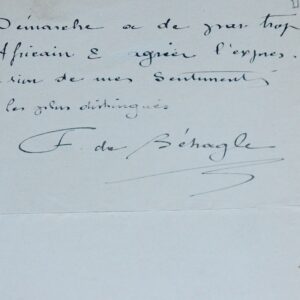 Démarche a de par trop
Africain & agréer l'expres.
sion de mes sentiments
les plus distingués
F. de Béhagle